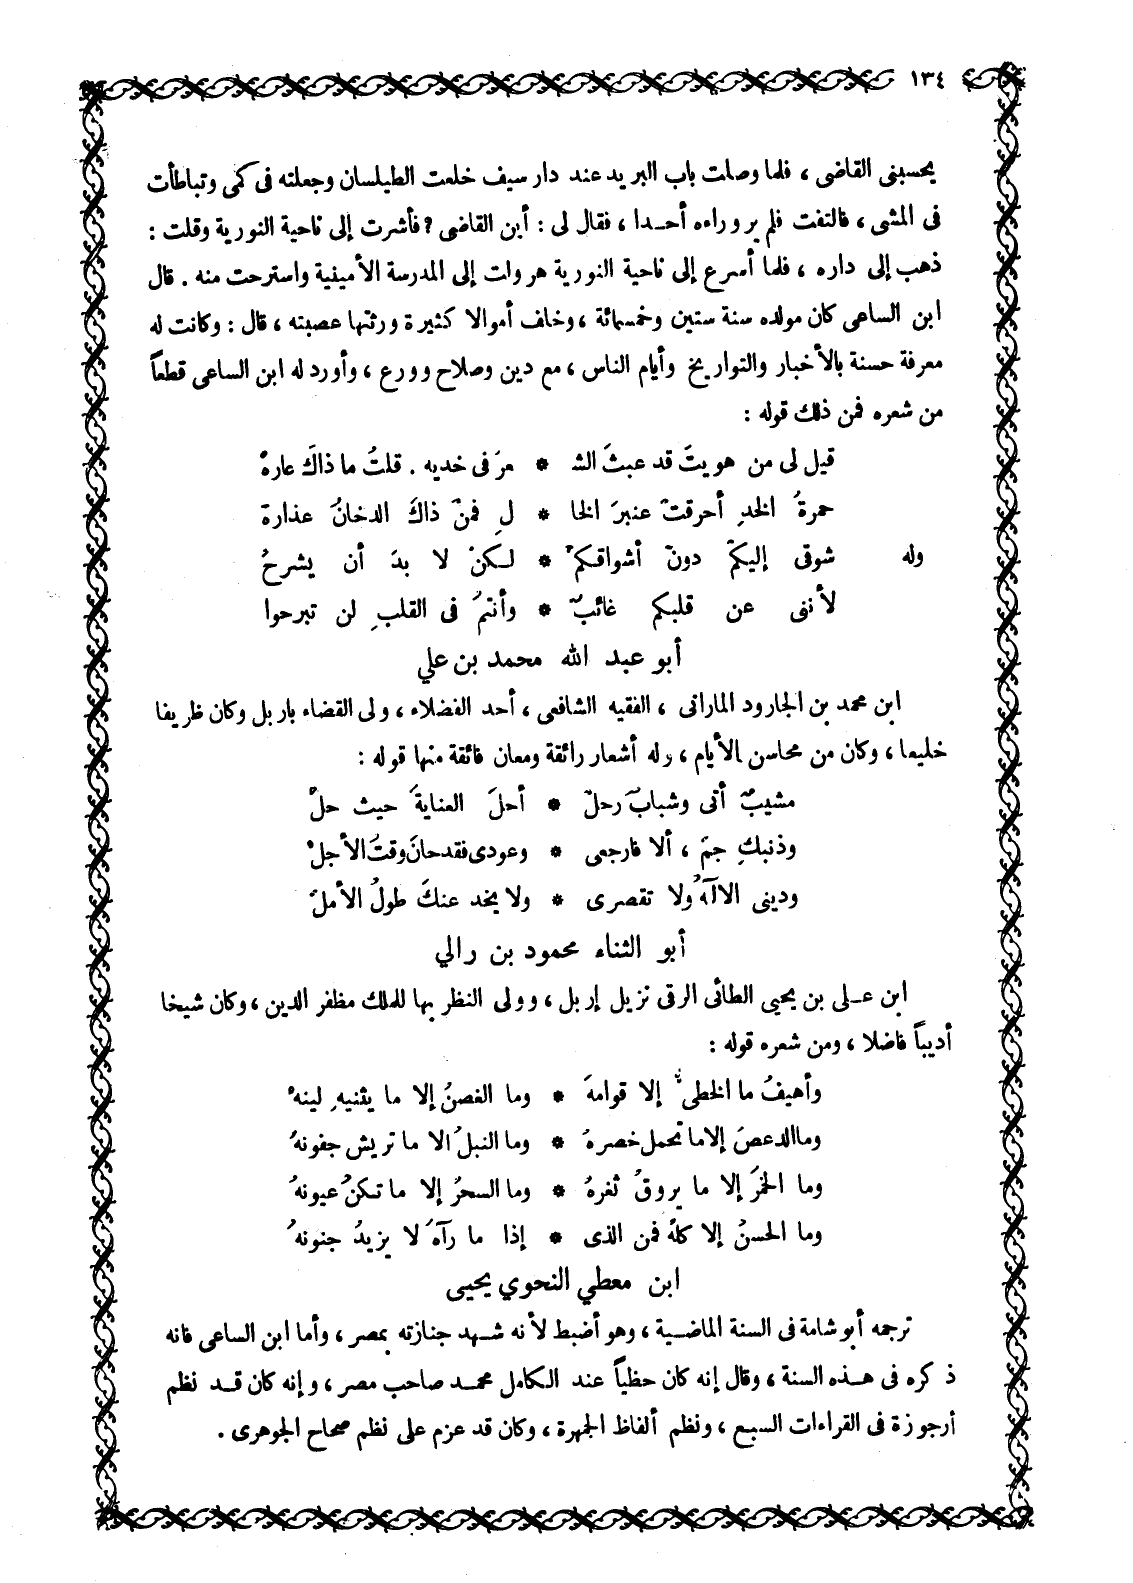 ١٣٤
يحسبنى القاضى ، فلما وصلت باب البريد عند دار سيف خلعت الطيلسان وجعلته فى كمى وتباطأت
فى المشى ، فالتفت فلم ير وراءه أحـدا ، فقال لى : أين القاضى ? فأشرت إلى ناحية النورية وقلت :
ذهب إلى داره ، فلما أسرع إلى ناحية النورية هرولت إلى المدرسة الأمينية واسترحت منه . قال
ابن الساعى كان مولده سنة ستين وخمسمائة ، وخلف أموالا كثيرة ورثتها عصبته ، قال : وكانت له
معرفة حسنة بالأخبار والتواريخ وأيام الناس ، مع دين وصلاح وورع ، وأورد له ابن الساعى قطعاً
من شعره فمن ذلك قوله :
قيل لى من هويتَ قد عبثَ الشـ * مرَ فى خديه . قلتُ ما ذاكَ عارهْ
حمرةُ الخدِ أحرقتْ عنبرَ الخا * لِ فمنْ ذاكَ الدخانُ عذارهْ
وله شوقى إليكمْ دونَ أشواقكمْ * لـكنْ لا بدَ أن يشرحُ
لأننى عن قلبكم غائبٌ * وأنتمُ فى القلبِ لن تبرحوا
أبو عبد الله محمد بن علي
ابن محمد بن الجارود المارانى ، الفقيه الشافعى ، أحد الفضلاء ، ولى القضاء باربل وكان ظريفا
خليعا ، وكان من محاسن الأيام ، وله أشعار رائقة ومعان فائقة منها قوله :
مشيبٌ أتى وشبابٌ رحلْ * أحلَ العنايةَ حيث حلْ
وذنبكِ جمَ ، ألا فارجعى * وعودى فقد حانَ وقتُ الأجلْ
ودينى الالَهَُ ولا تقصرى * ولا يخد عنكَ طولُ الأملْ
أبو الثناء محمود بن رالي
ابن عـلى بن يحيى الطائى الرقى نزيل إربل ، وولى النظر بها للملك مظفر الدين ، وكان شيخا
أديباً فاضلا ، ومن شعره قوله :
وأهيفُ ما الخطىُّ إلا قوامهَ * وما الغصنُ إلا ما يثنيهِ لينهْ
وما الدعصَ إلا ما تحمل خصرهُ * وما النبلُ الا ما تريش جفونهُ
وما الخمرَ إلا ما يروقُ ثغرهُ * وما السحرُ إلا ما تكنُ عيونهُ
وما الحسنُ إلا كلهُ فمن الذى * إذا ما رآهَ لا يزيدُ جنونهُ
ابن معطي النحوي يحيى
ترجمه أبو شامة فى السنة الماضـية ، وهو أضبط لأنه شـهد جنازته بمصر ، وأما ابن الساعى فانه
ذكره فى هـذه السنة ، وقال إنه كان حظياً عند الكامل محمـد صاحب مصر ، وإنه كان قـد نظم
أرجوزة فى القراءات السبع ، ونظم ألفاظ الجمهرة ، وكان قد عزم على نظم صحاح الجوهرى .